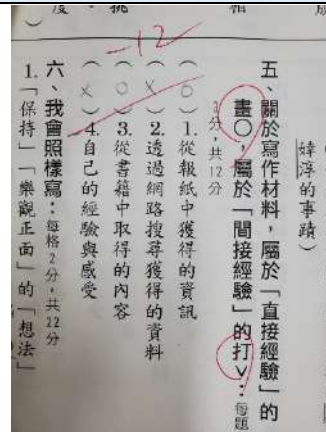 婞淳的事蹟)
五、關於寫作材料,屬於「直接經驗」的
畫○,屬於「間接經驗」的打ˇ:每題
3分,共12分
(○)1.從報紙中獲得的資訊
(X)2.透過網路搜尋獲得的資料
(○)3.從書籍中取得的內容
(X)4.自己的經驗與感受
-12
六、我會照樣寫:每格2分,共22分
1.「保持」「樂觀正面」的「想法」